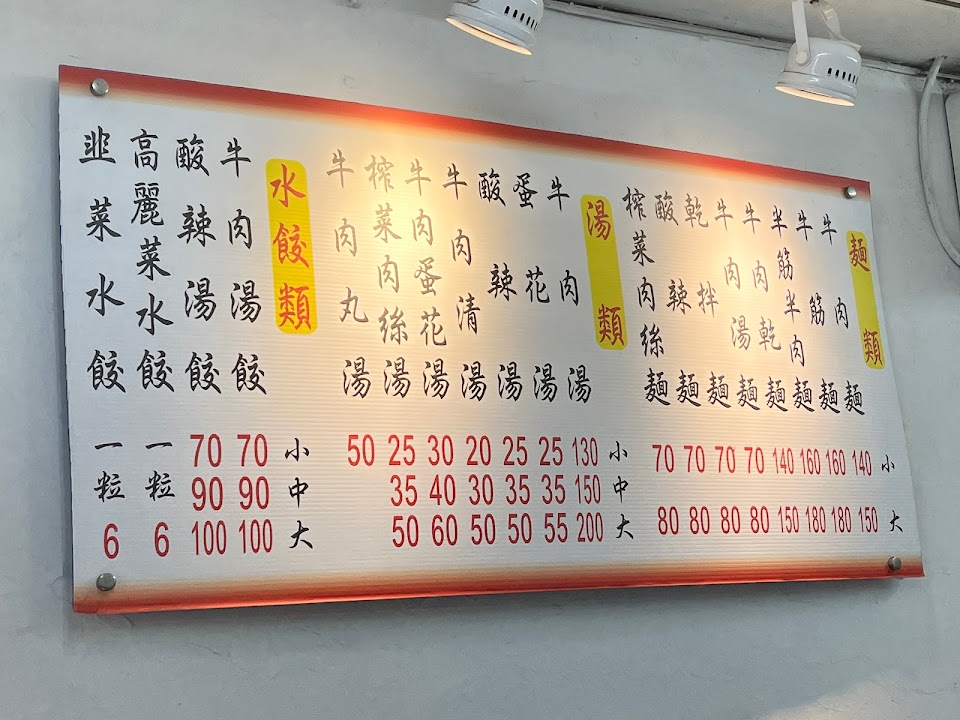 麵類
小 大
牛肉麵 140 150
牛筋麵 160 180
半筋半肉麵 160 180
牛肉乾麵 140 150
牛肉湯麵 70 80
乾拌麵 70 80
酸辣麵 70 80
榨菜肉絲麵 70 80
湯類
小 中 大
牛肉湯 130 150 200
蛋花湯 25 35 55
酸辣湯 25 35 50
牛肉清湯 20 30 50
牛肉蛋花湯 30 40 60
榨菜肉絲湯 25 35 50
牛肉丸湯 50
水餃類
小 中 大
牛肉湯餃 70 90 100
酸辣湯餃 70 90 100
高麗菜水餃 一粒 6
韭菜水餃 一粒 6